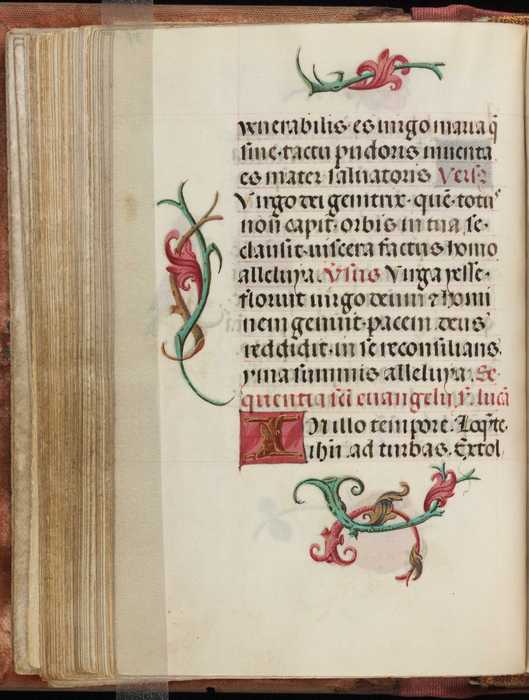 venerabilis · es uirgo maria q̄
sine · tactu pudoris inuenta
es mater saluatoris Vers9
Virgo dei genitrix · quē · totus
non capit · orbis in tua se ·
clausit · uiscera factus homo
alleluya . Vsus Virga yesse ·
floruit uirgo deum ⁊ homi
nem genuit · pacem deus
reddidit · in se reconsilians
yma summis alleluya . Se
quentia sci euangelij ẜ lucā
In illo tempore . Loqn̄te
ihū . ad turbas . Extol